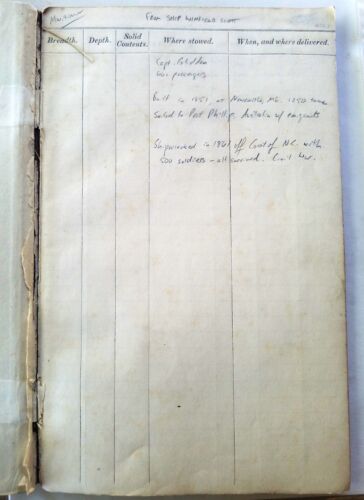 FROM SHIP WINFIELD SCOTT
Breadth. Depth. Solid Contents. Where stowed. When, and where delivered.
Capt.
passengers
Built in 1851, at Newcastle, ME. 1250 tons
Sailed to Port Phillip, Australia w/ emigrants
Shipwrecked in 1861 off Coast of N.C. with
500 soldiers - all survived. Civil War.